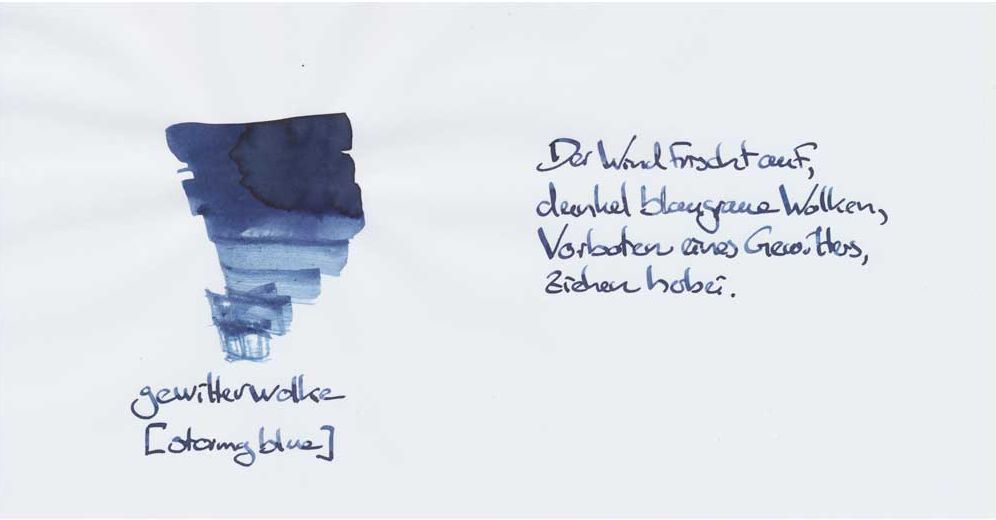 Der Wind frischt auf,
dunkel blaugraue Wolken,
Vorboten eines Gewitters,
ziehen herbei.
gewitterwolke
[stormy blue]